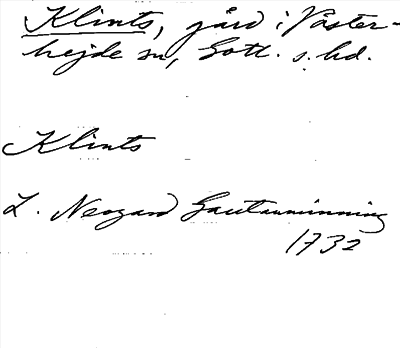 Klints, gård i Väster-
hejde sn, Gotl. s. hd.
Klints
L. Neogard Gautauminning
1732